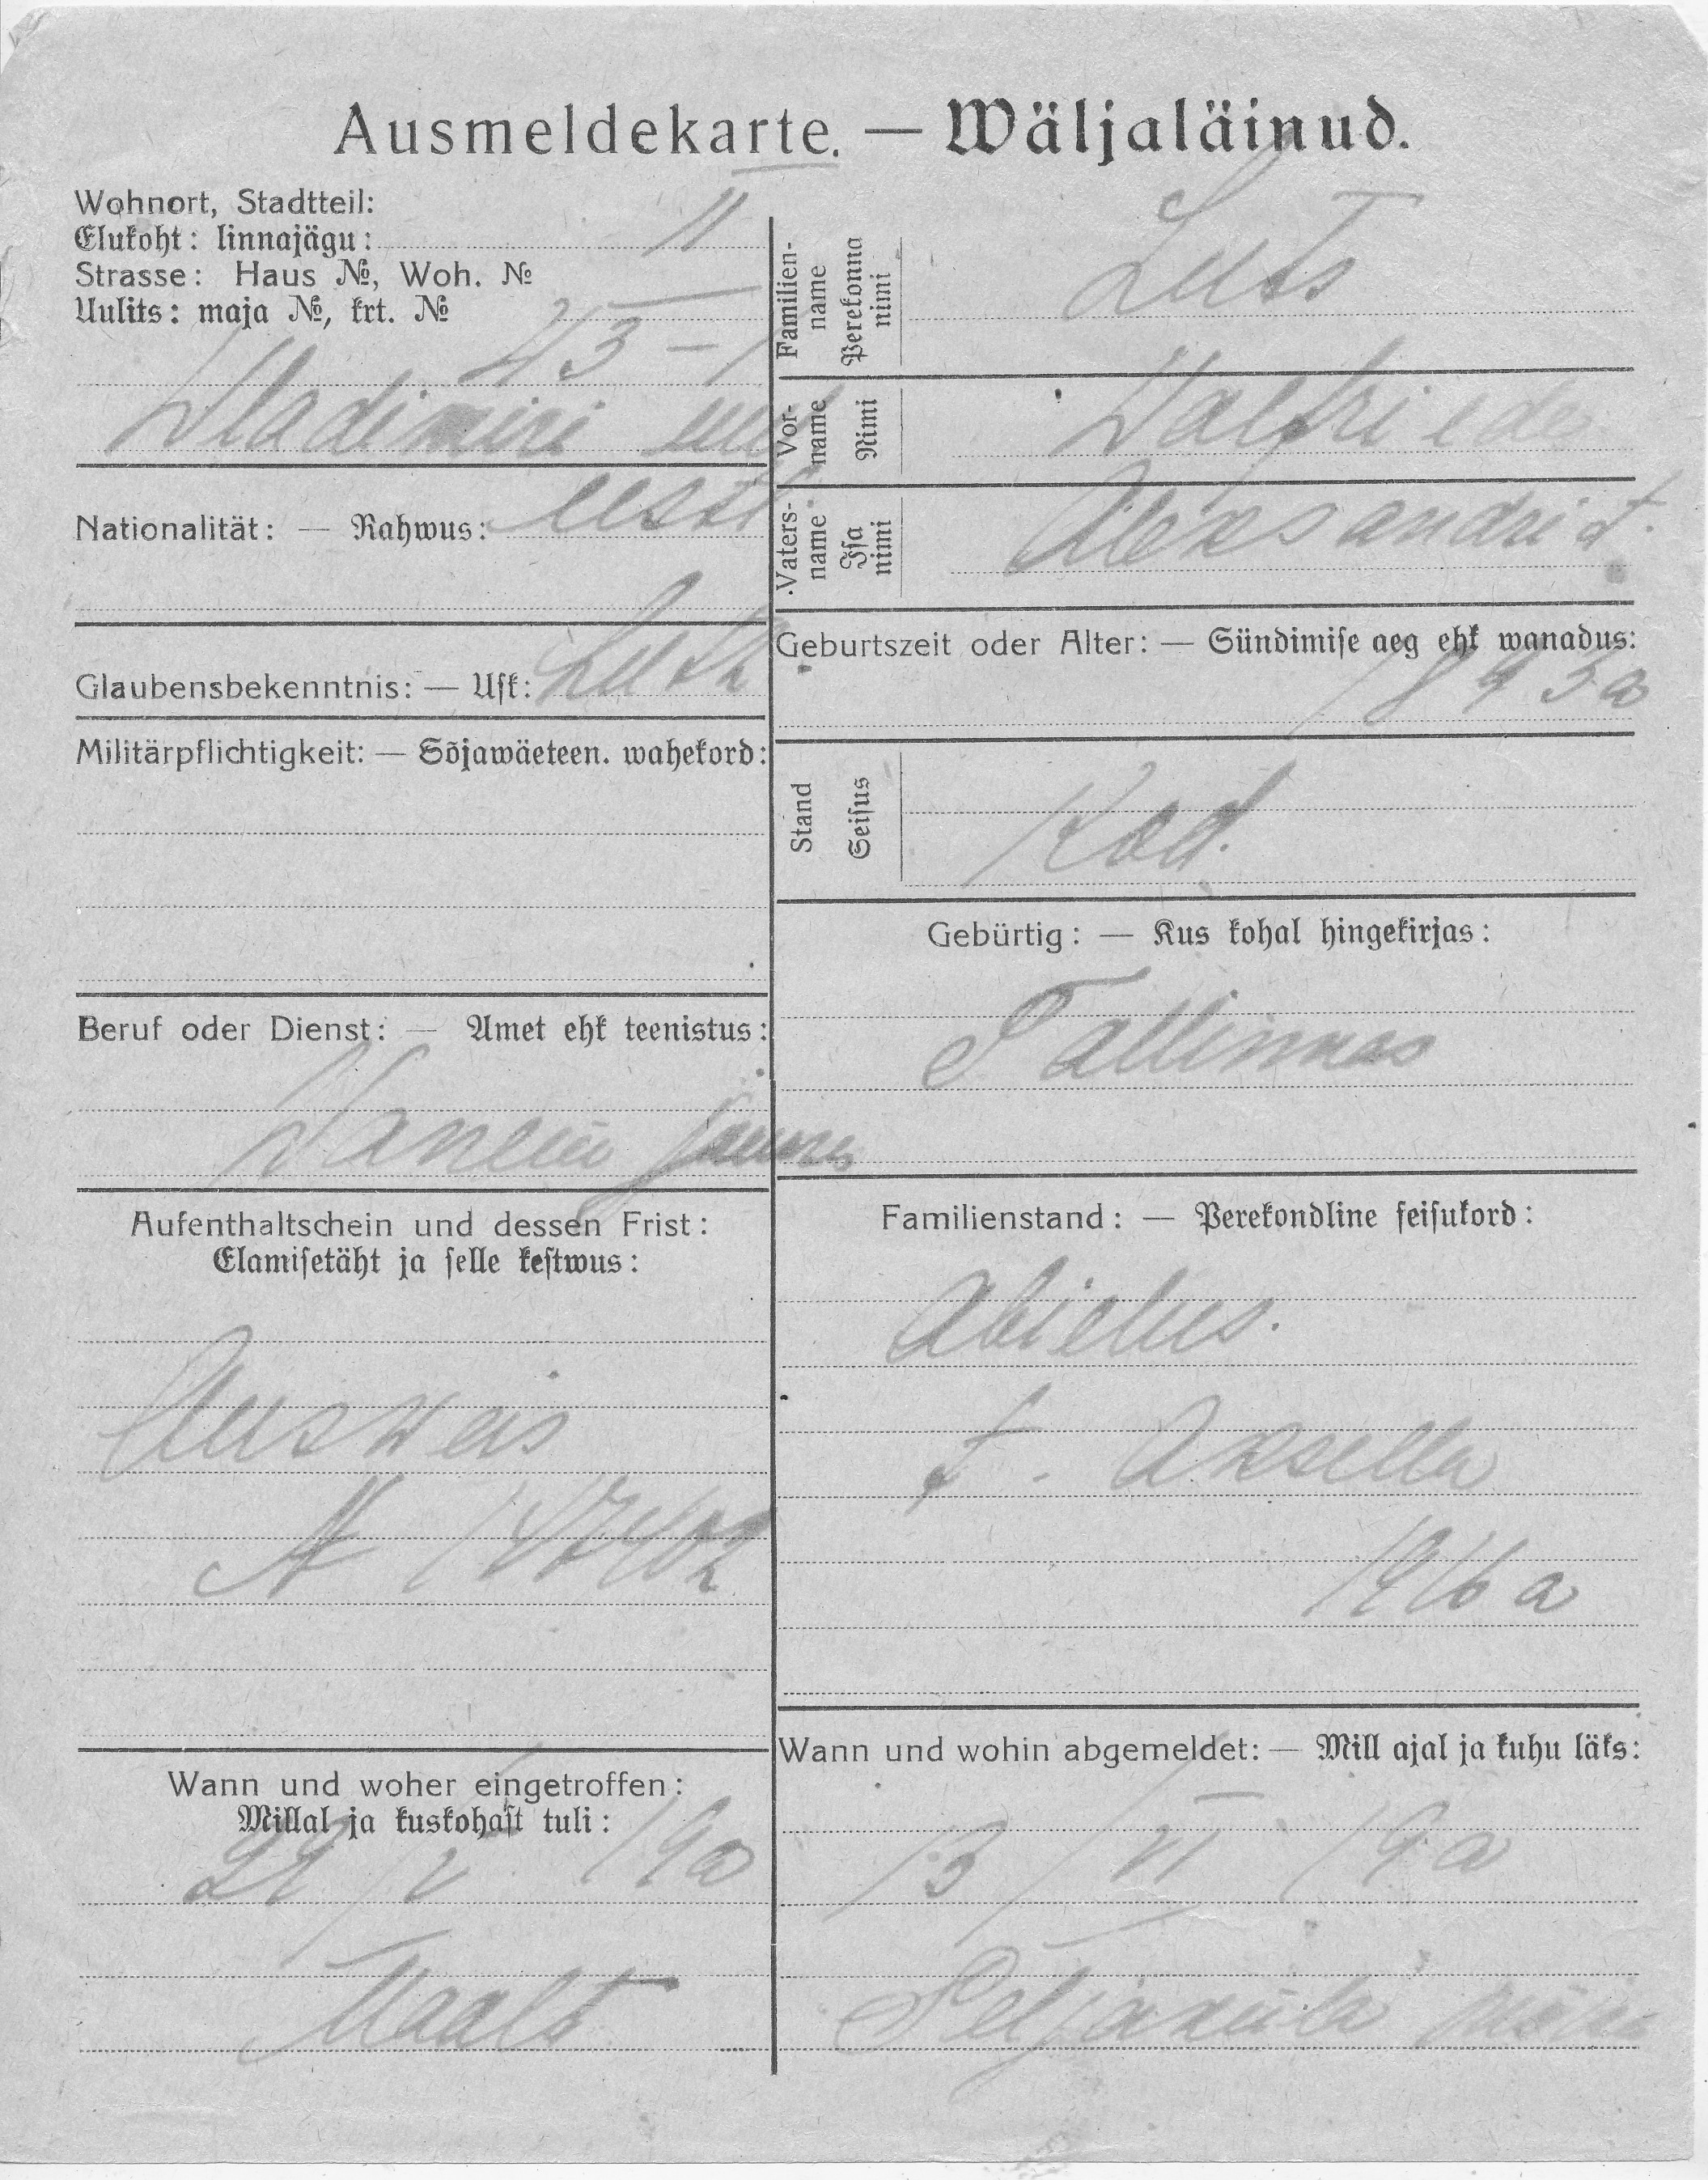 Ausmeldekarte. — Wäljaläinud.
Wohnort, Stadtteil:
Elukoht: linnajägu: II
Strasse: Haus №, Woh. №
Uulits: maja №, krt. №
43 – 1
Wladimiri uul
Nationalität: — Rahwus: eesti
Glaubensbekenntnis: — Usk: Luth
Militärpflichtigkeit: — Sõjawäeteen. wahekord:
Beruf oder Dienst: — Amet ehk teenistus:
Aufenthaltschein und dessen Frist:
Elamisetäht ja selle kestwus:
Ausweis
Wann und woher eingetroffen:
Millal ja kuskohast tuli:
/V 19a
Maalt
Familien-
name
Perekonna
nimi
Luts
Vor-
name
Nimi
Walfriede
Vaters-
name
Isa
nimi
Aleksandri t.
Geburtszeit oder Alter: — Sündimise aeg ehk wanadus:
1893a
Stand
Seisus
Kod.
Gebürtig: — Kus kohal hingekirjas:
Tallinnas
Familienstand: — Perekondline seisukord:
Abielus.
t. Aksella
1916 a
Wann und wohin abgemeldet: — Mill ajal ja kuhu läks:
13/VI 19 a
Seljaküla mõisa